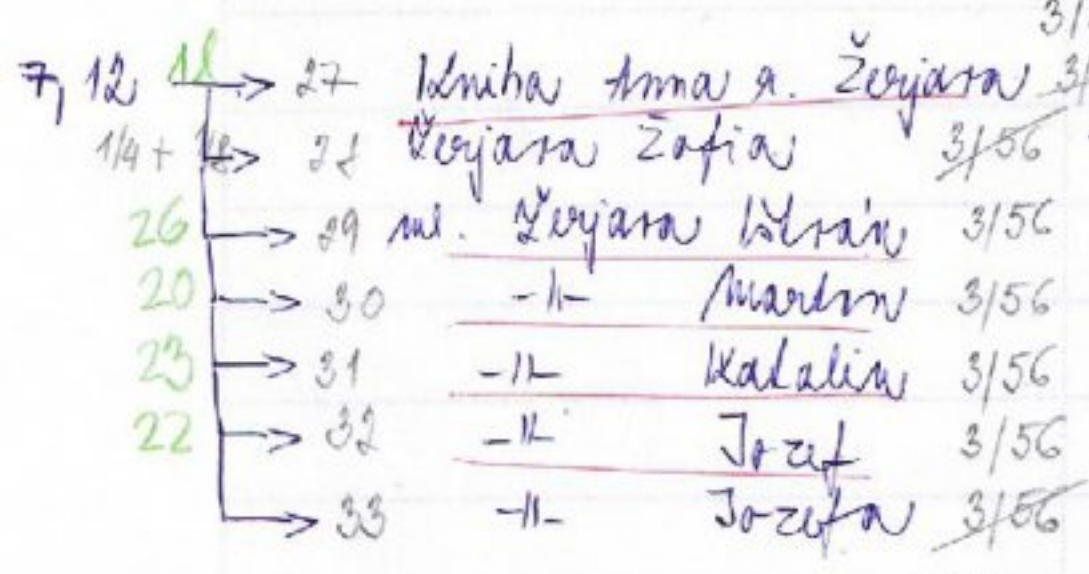 3/
7, 12 18 → 27 Kniha Anna r. Žerjava 3/
1/4 + 1/8 → 28 Žerjava Zofia 3/56
26 → 29 ml. ŽerjavaIštván 3/56
20 → 30 -||- Martin 3/56
23 → 31 -||- Katalin 3/56
22 → 32 -||- Jozef 3/56
→ 33 -||- Jozefa 3/56